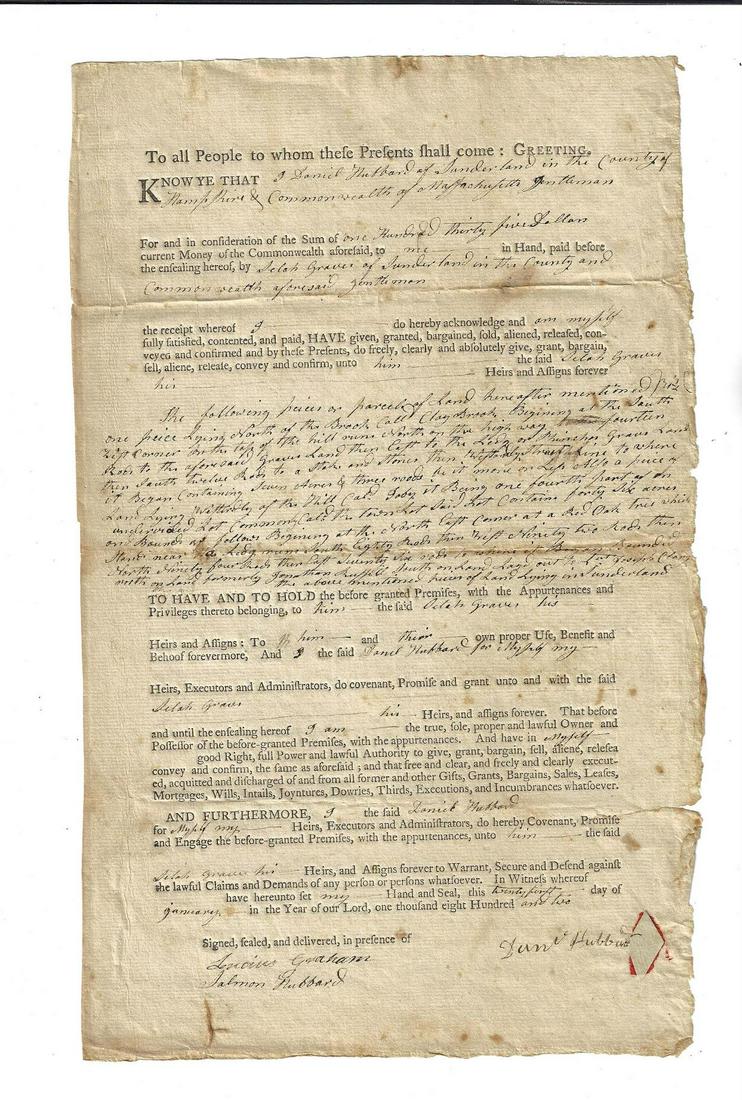 To all People to whom theſe Preſents ſhall come : GREETING.
KNOW YE THAT I Daniel Hubbard of Sunderland in the County of
Hampshire & Commonwealth of Massachusetts Gentleman
For and in conſideration of the Sum of one Hundred thirty five Dollars
current Money of the Commonwealth aforeſaid, to me in Hand, paid before
the enſealing hereof, by Selah Graves of Sunderland in the County and
Commonwealth aforesaid gentleman
the receipt whereof I do hereby acknowledge and am myself
fully ſatisfied, contented, and paid, HAVE given, granted, bargained, ſold, aliened, releaſed, con-
veyed and confirmed and by theſe Preſents, do freely, clearly and abſolutely give, grant, bargain,
ſell, aliene, releaſe, convey and confirm, unto him the ſaid Selah Graves
his Heirs and Aſſigns forever
The following peices or parcels of Land hereafter mentioned (viz
one peice Lying North of the Brook Calld Clay Brook Begining at the South
West Corner on the top of the hill runs North on the high way fourteen
Rods to the aforesaid Graves Land then East to the Ledg or Phinehas Graves Land
then South twelve Rods to a Stake and Stones then Westerly Line to where
it Began Containing Seven Acres & three roods be it more or Less Also a peice of
Land Lying Westerly of the Hill Calld it Being one fourth part of an
undivided Lot Commonly Calld the town Lot Said Lot Contains forty Six acres
and Bounds as follows Begining at the North East Corner at a Red Oak tree which
Stands near the Ledg runs South Eighty Rods then West Ninety two Rods then
North Ninety four Rods then East Seventy Six rods to where it Began Bounded
north on Land formerly Jonathan Russels South on Land Layd out to
the above mentioned peices of Land Lying in Sunderland
TO HAVE AND TO HOLD the before granted Premiſes, with the Appurtenances and
Privileges thereto belonging, to him the ſaid Selah Graves his
Heirs and Aſſigns : To him and their own proper Uſe, Benefit and
Behoof forevermore, And I the ſaid Daniel Hubbard for Myself my
Heirs, Executors and Adminiſtrators, do covenant, Promiſe and grant unto and with the ſaid
Selah Graves
his Heirs, and aſſigns forever. That before
and until the enſealing hereof I am the true, ſole, proper and lawful Owner and
Poſſeſſor of the before-granted Premiſes, with the appurtenances. And have in Myself
good Right, full Power and lawful Authority to give, grant, bargain, ſell, aliene, releaſea
convey and confirm, the ſame as aforeſaid ; and that free and clear, and freely and clearly execut-
ed, acquitted and diſcharged of and from all former and other Gifts, Grants, Bargains, Sales, Leaſes,
Mortgages, Wills, Intails, Joyntures, Dowries, Thirds, Executions, and Incumbrances whatſoever.
AND FURTHERMORE, I the ſaid Daniel Hubbard
for Myself my Heirs, Executors and Adminiſtrators, do hereby Covenant, Promiſe
and Engage the before-granted Premiſes, with the appurtenances, unto him the ſaid
Selah Graves his Heirs, and Aſſigns forever to Warrant, Secure and Defend againſt
the lawful Claims and Demands of any perſon or perſons whatſoever. In Witneſs whereof
have hereunto ſet my Hand and Seal, this twenty first day of
January in the Year of our Lord, one thouſand eight Hundred and two
Signed, ſealed, and delivered, in preſence of
Danl Hubbard
Lucius Graham
Salmon Hubbard